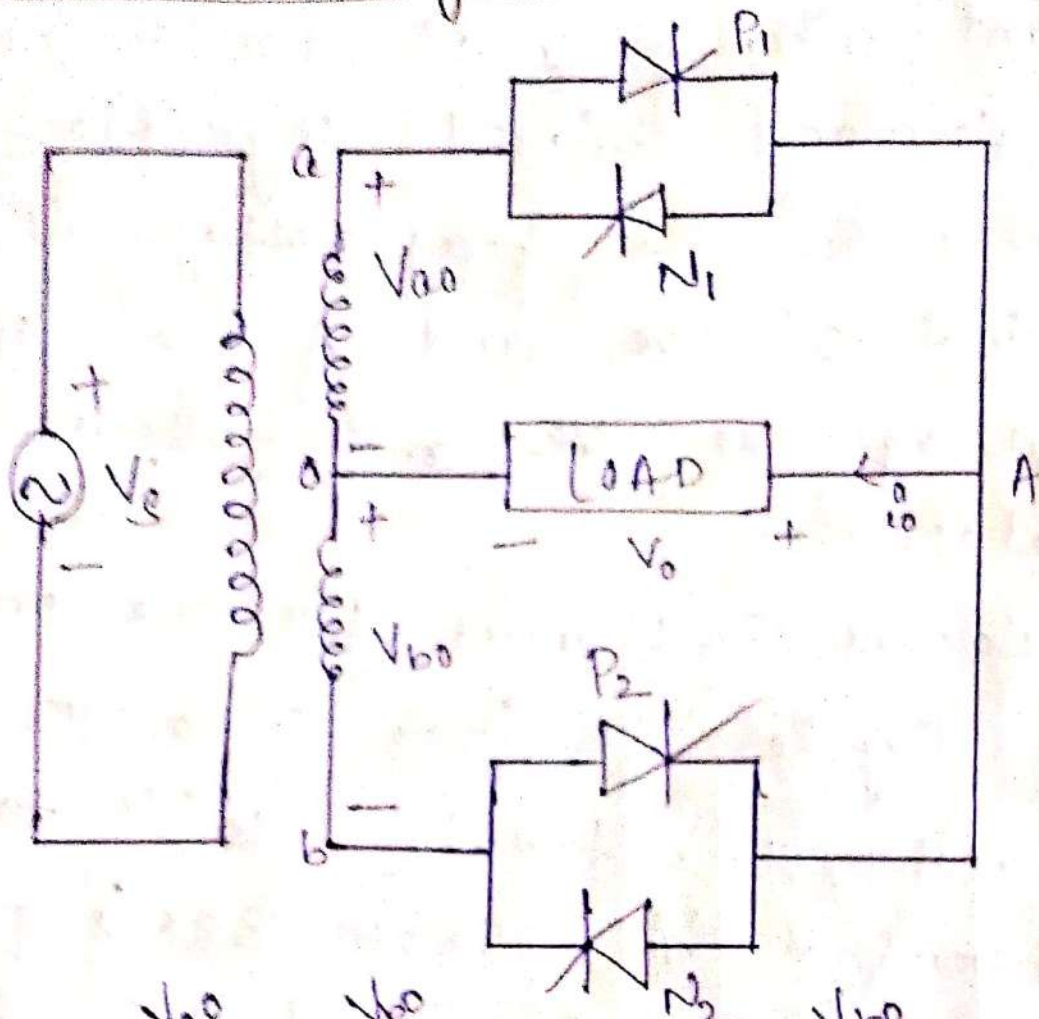 P1
a
+
Vao
N1
+
Vs
-
-
o
+
LOAD
i0
A
-
Vo
+
Vbo
P2
-
b
N2
Vao Vbo Vbo